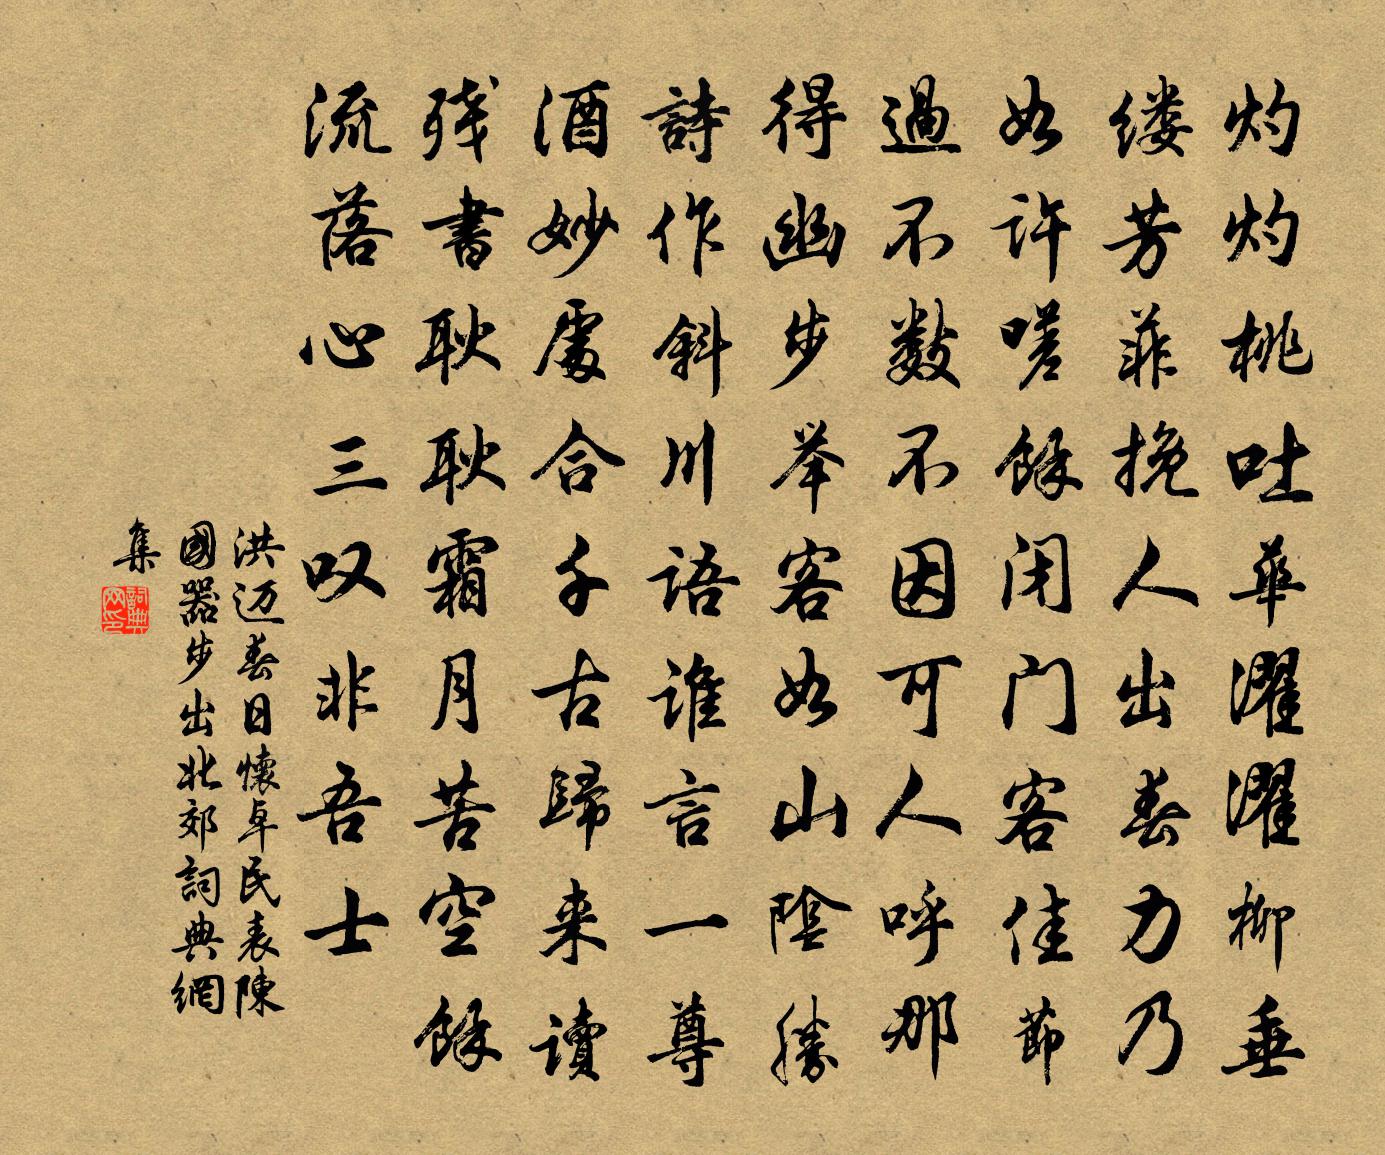 灼灼桃吐華濯濯柳垂
缕芳菲挽人出春力乃
如许嗟餘闭门客佳節
過不數不因可人呼那
得幽步举客如山陰勝
詩作斜川語谁言一尊
酒妙處合千古歸来读
残書耿耿霜月苦空餘
流落心三叹非吾士
洪迈春日懷卓民表陳
國器步出北郊詞典網
集
詞典网印